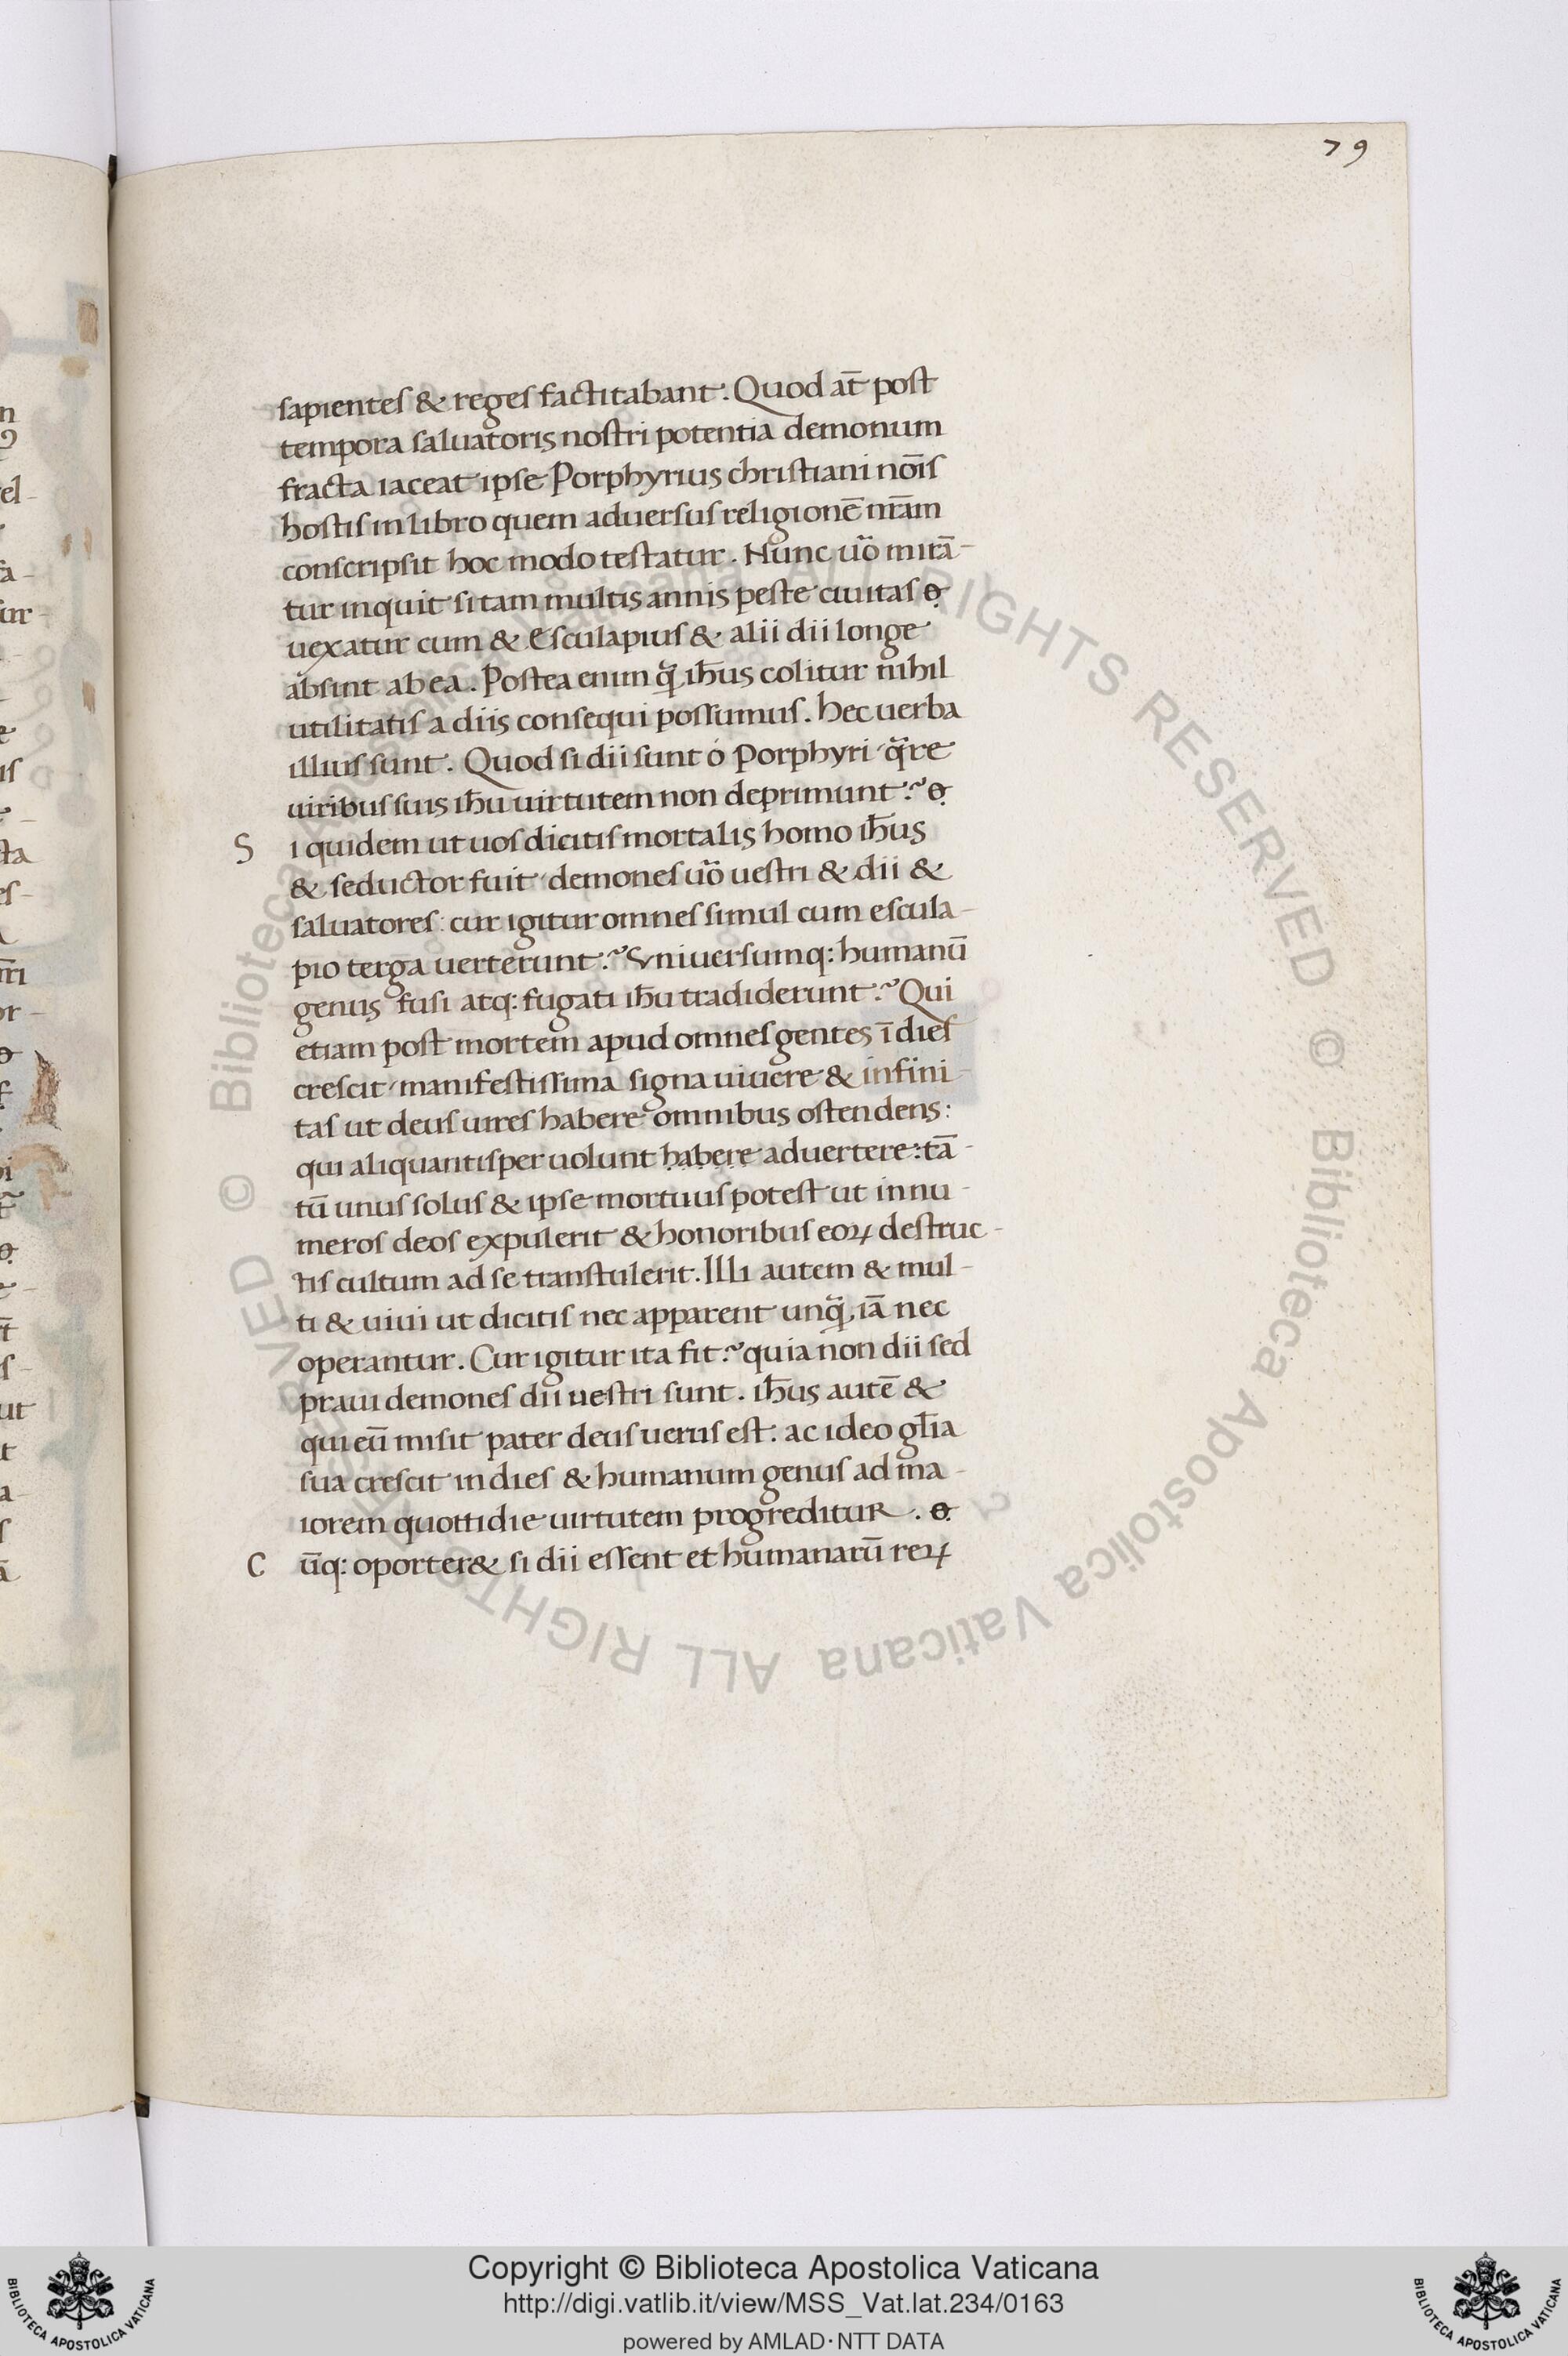 79
sapientes & reges factitabant. Quod at̄ post
tempora saluatoris nostri potentia demonum
fracta iaceat ipse Porphyrius christiani noı̄s
hostis in libro quem aduersus religionē nr̄am
conscripsit hoc modo testatur. Nunc uo᷑ mirā-
tur inquit si tam multis annis peste ciuitas
uexatur cum & Esculapius & alii dii longe
absint ab ea. Postea enim ihūs colitur nihil
utilitatis a diis consequi possumus. hec uerba
illius sunt. Quod si dii sunt ó Porphyri q̄re
uiribus suis ihū uirtutem non deprimunt?
S i quidem ut uos dicitis mortalis homo ihūs
& seductor fuit demones uo᷑ uestri & dii &
saluatores: cur igitur omnes simul cum escula-
pio terga uerterunt? Vniuersumq: humanū
genus fusi atq: fugati ihū tradiderunt? Qui
etiam post mortem apud omnes gentes ī dies
crescit manifestissima signa uiuere & infini-
tas ut deus uires habere omnibus ostendens:
qui aliquantisper uolunt ḥạḅẹṛẹ aduertere: tā-
tū unus solus & ipse mortuus potest ut innu-
meros deos expulerit & honoribus eoꝝ destruc-
tis cultum ad se transtulerit. Illi autem & mul-
ti & uiui ut dicitis nec apparent unq̄ iā nec
operantur. Cur igitur ita fit? quia non dii sed
praui demones dii uestri sunt. ihūs autē &
qui eū misit pater deus uerus est: ac ideo gl̄ia
sua crescit in dies & humanum genus ad ma-
iorem quottidie uirtutem progreditur.
C ūq: oporter& si dii essent et humanarū reꝝ
© Biblioteca Apostolica Vaticana ALL RIGHTS RESERVED © Biblioteca Apostolica Vaticana ALL RIGHTS RESERVED
Copyright © Biblioteca Apostolica Vaticana
http://digi.vatlib.it/view/MSS_Vat.lat.234/0163
powered by AMLAD·NTT DATA
BIBLIOTECA APOSTOLICA VATICANA
BIBLIOTECA APOSTOLICA VATICANA